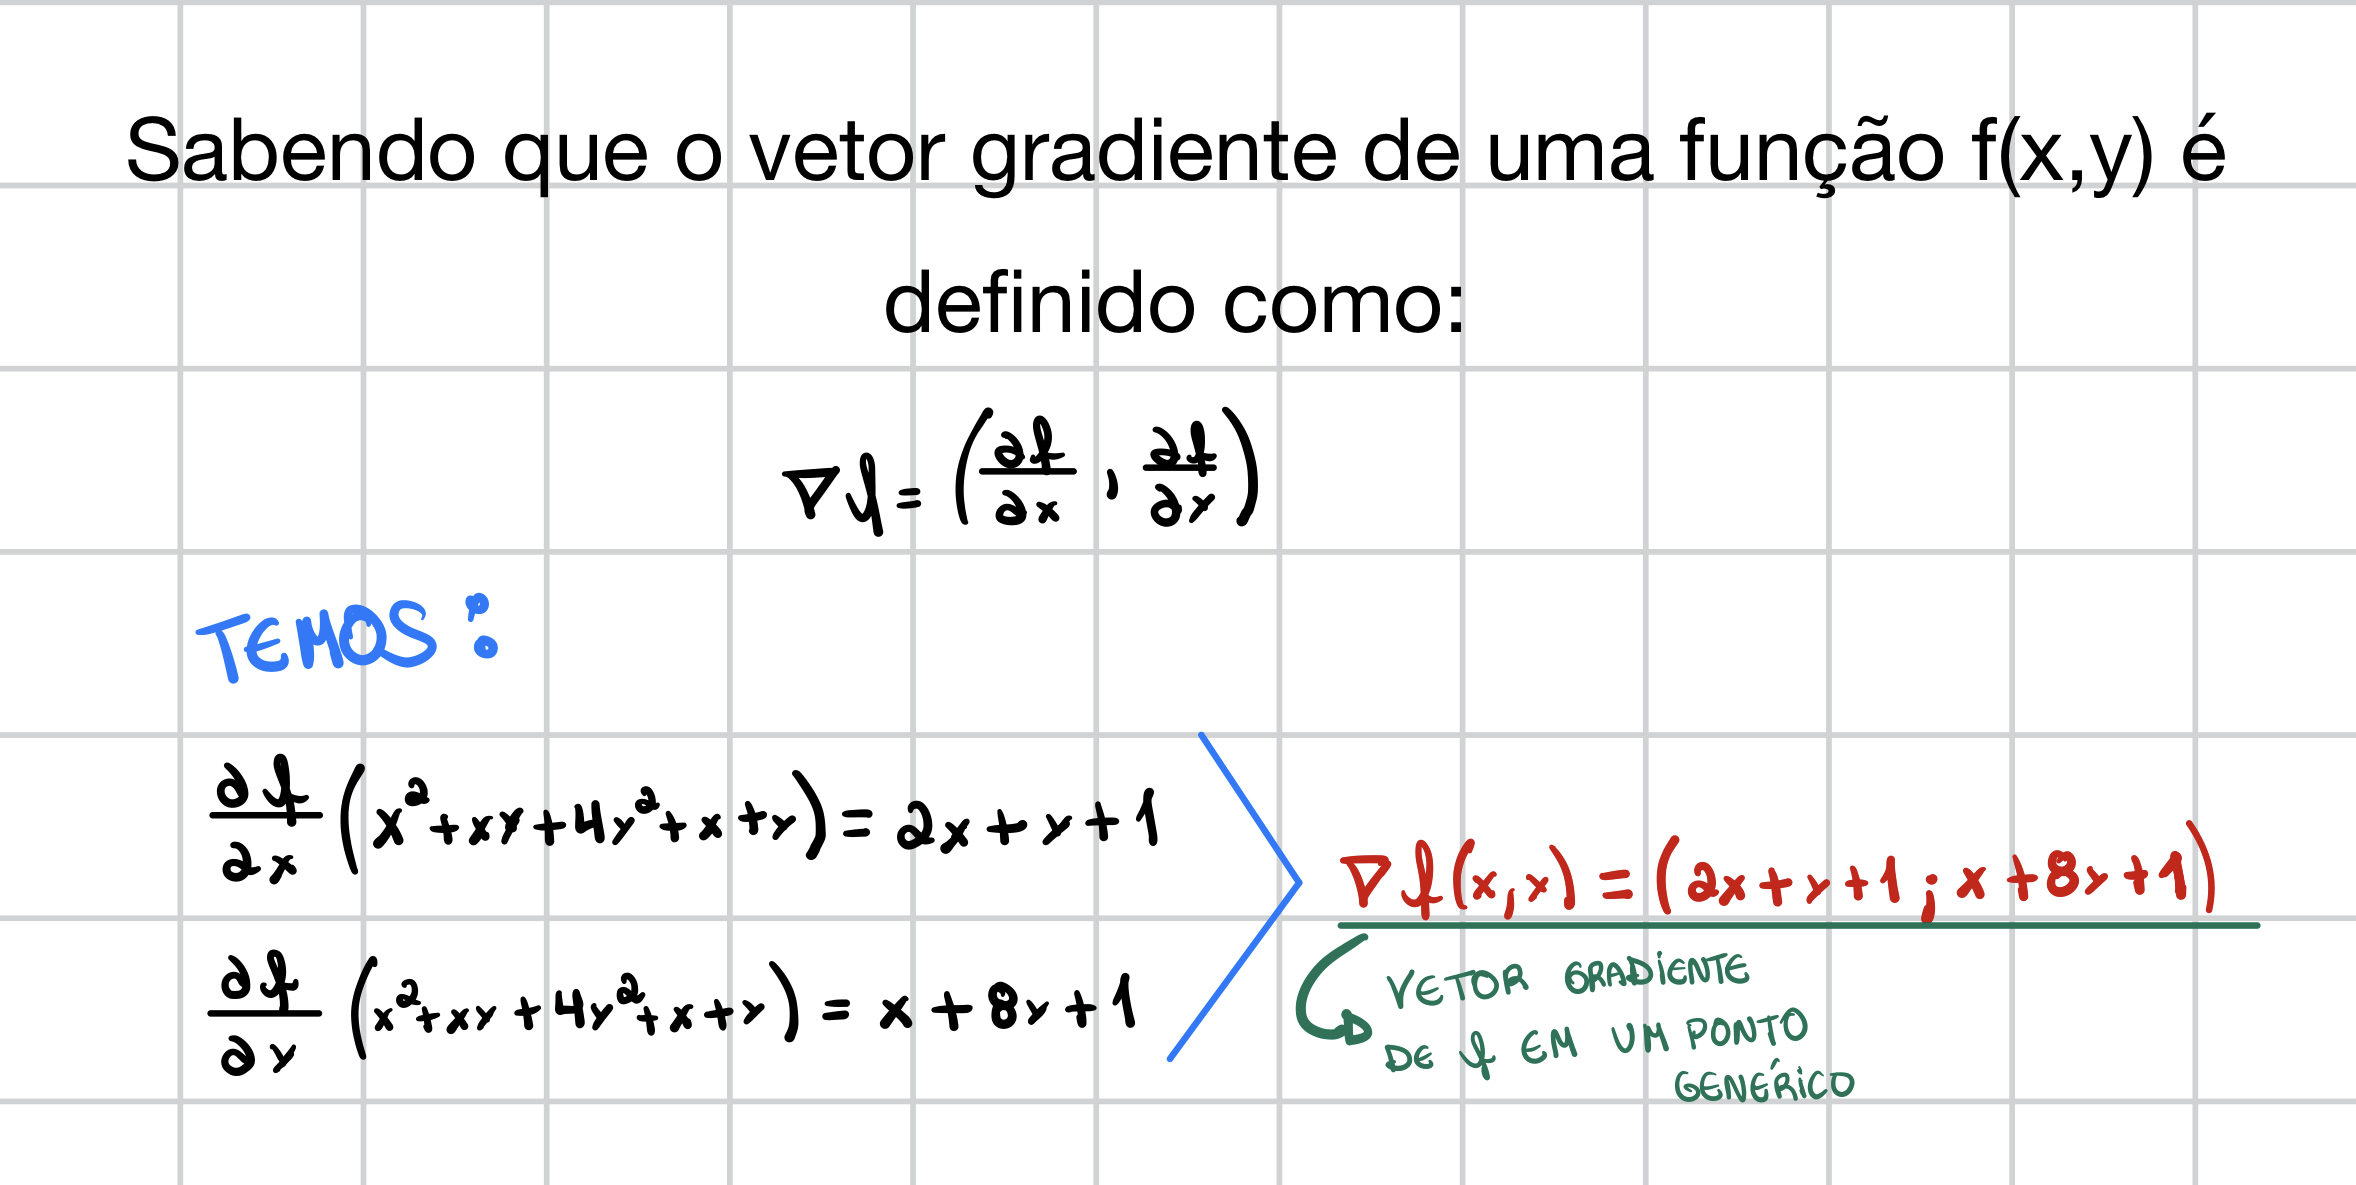 Sabendo que o vetor gradiente de uma função f(x,y) é
definido como:
∇f = (∂f/∂x , ∂f/∂y)
TEMOS:
∂f/∂x (x² + xy + 4y² + x + y) = 2x + y + 1
∇f(x,y) = (2x + y + 1 ; x + 8y + 1)
∂f/∂y (x² + xy + 4y² + x + y) = x + 8y + 1
VETOR GRADIENTE
DE f EM UM PONTO
GENÉRICO